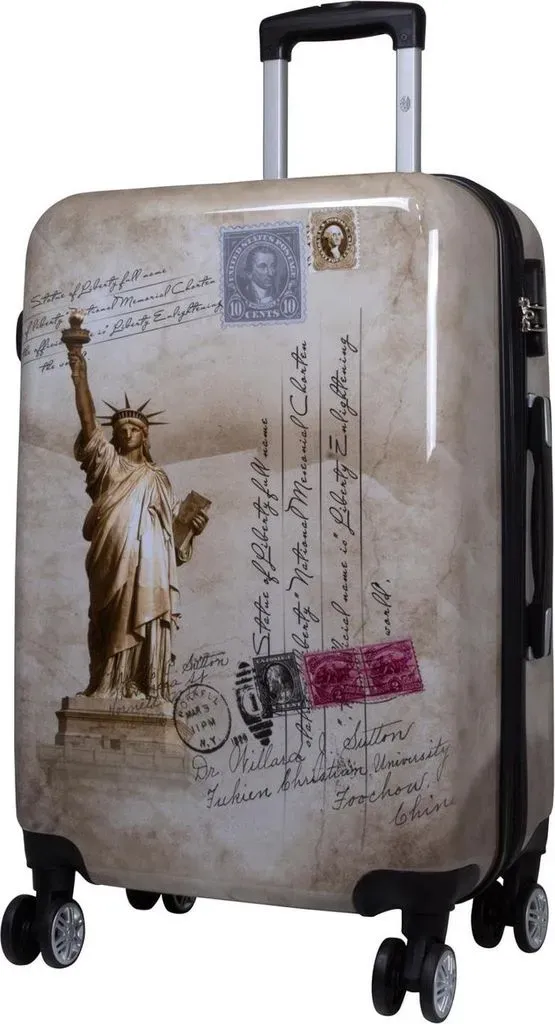 Statue of Liberty full name
liberty" National Memorial Charten
is "Liberty Enlightening
the
UNITED STATES POSTAGE
10 CENTS 10
Statue of Liberty full name
liberty" National Memorial Charten
icial name is "Liberty Enlightening
world.
Sutton
HORNELL
MAR 9
11 PM
N.Y.
Dr. Willard J. Sutton
Fukien Christian University
Foochow
Chin